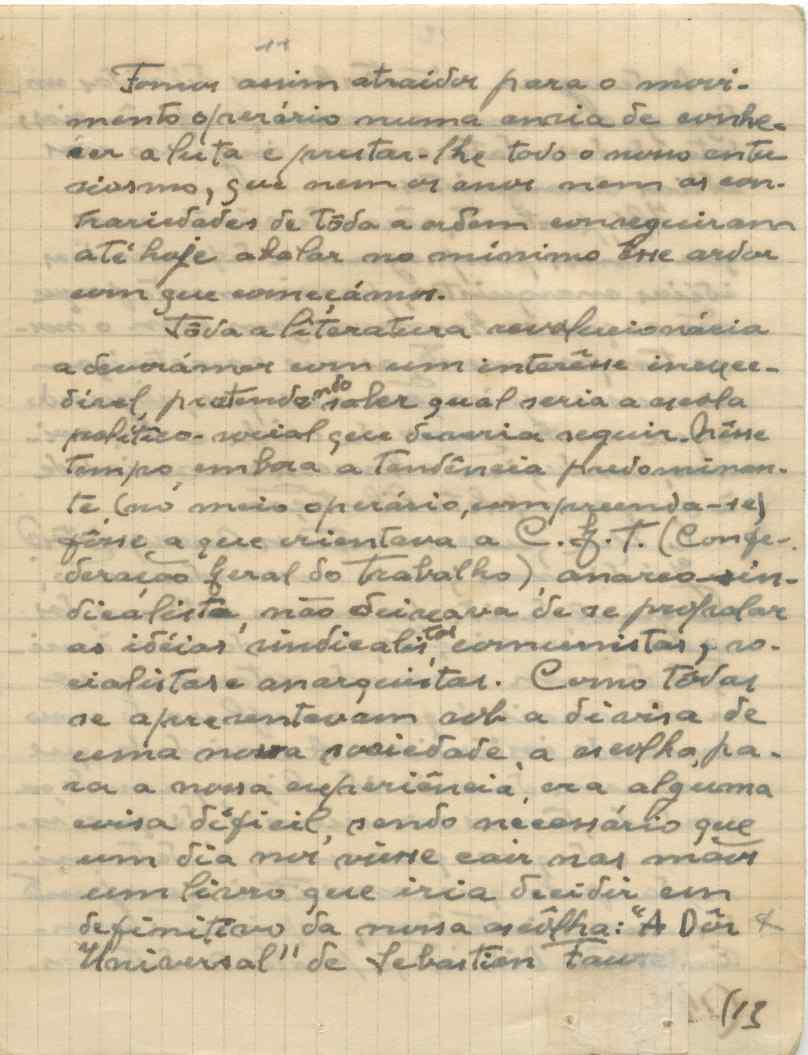 11
Fomos assim atraídos para o movi-
mento operário numa ancia de conhe-
cer a luta e prestar-lhe todo o nosso entu
siasmo, que nem os anos nem as con-
trariedades de tôda a ordem conseguiram
até hoje abalar no mínimo êsse ardor
com que começámos.
Tôda a literatura revolucionária
a devorámos com um interêsse inexce-
dível, pretendendo saber qual seria a escola
político-social que deveria seguir. Nêsse
tempo, embora a tendência predominan-
te (no meio operário, compreenda-se)
fôsse a que orientava a C.G.T. (Confe-
deração Geral do Trabalho), anarco-sin-
dicalista, não deixava de se propalar
as idéias sindicalistas, comunistas, so-
cialistas e anarquistas. Como tôdas
se apresentavam sob a divisa de
uma nova sociedade, a escolha, pa-
ra a nossa experiência, era alguma
coisa difícil, sendo necessário que
um dia nos viesse cair nas mãos
um livro que iria decidir em
definitivo da nossa escôlha: "A Dôr
Universal" de Sebastien Faure
(13